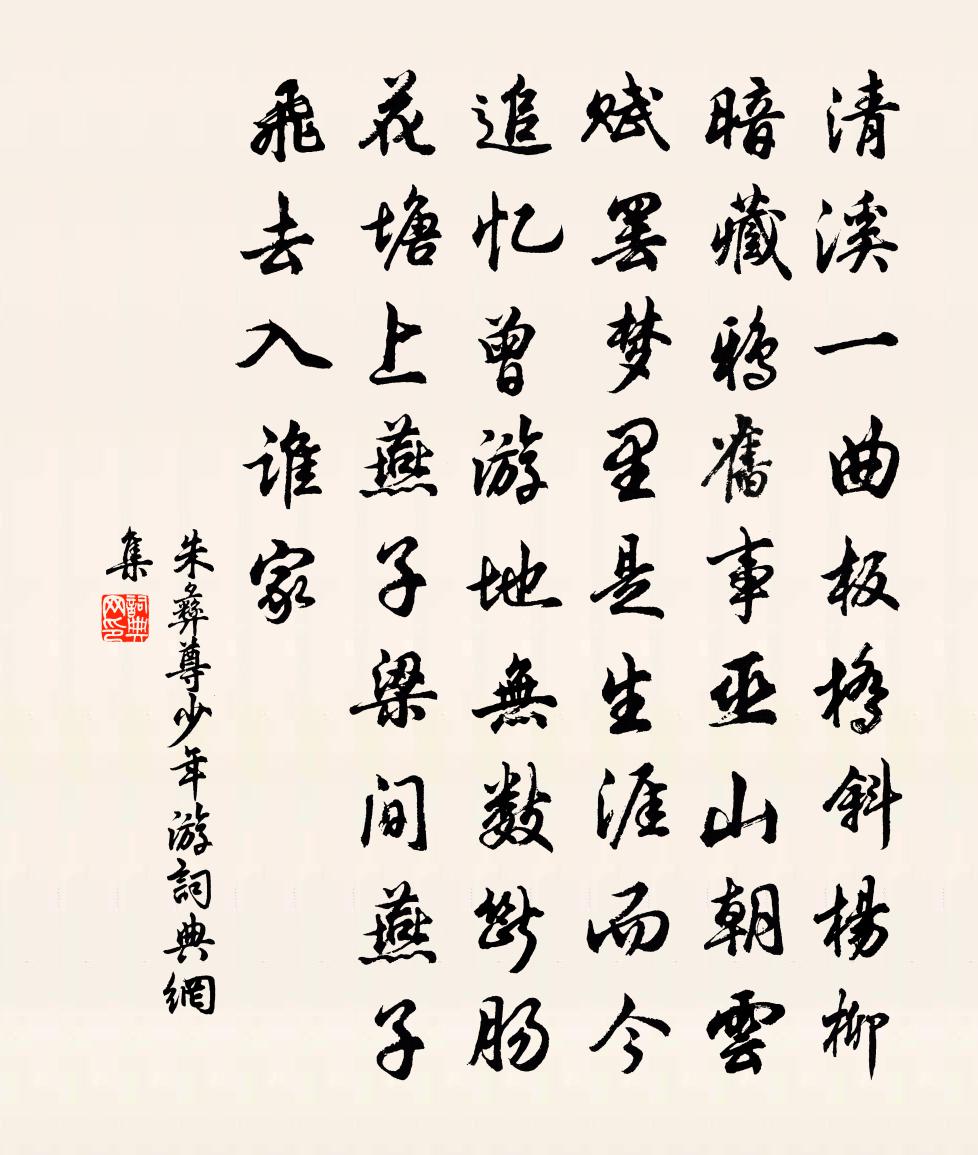 清溪一曲板橋斜楊柳
暗藏鴉舊事巫山朝雲
赋罢梦里是生涯而今
追忆曾游地無数斷肠
花塘上燕子梁间燕子
飛去入谁家
朱彝尊少年游詞典網
集
詞典
网印